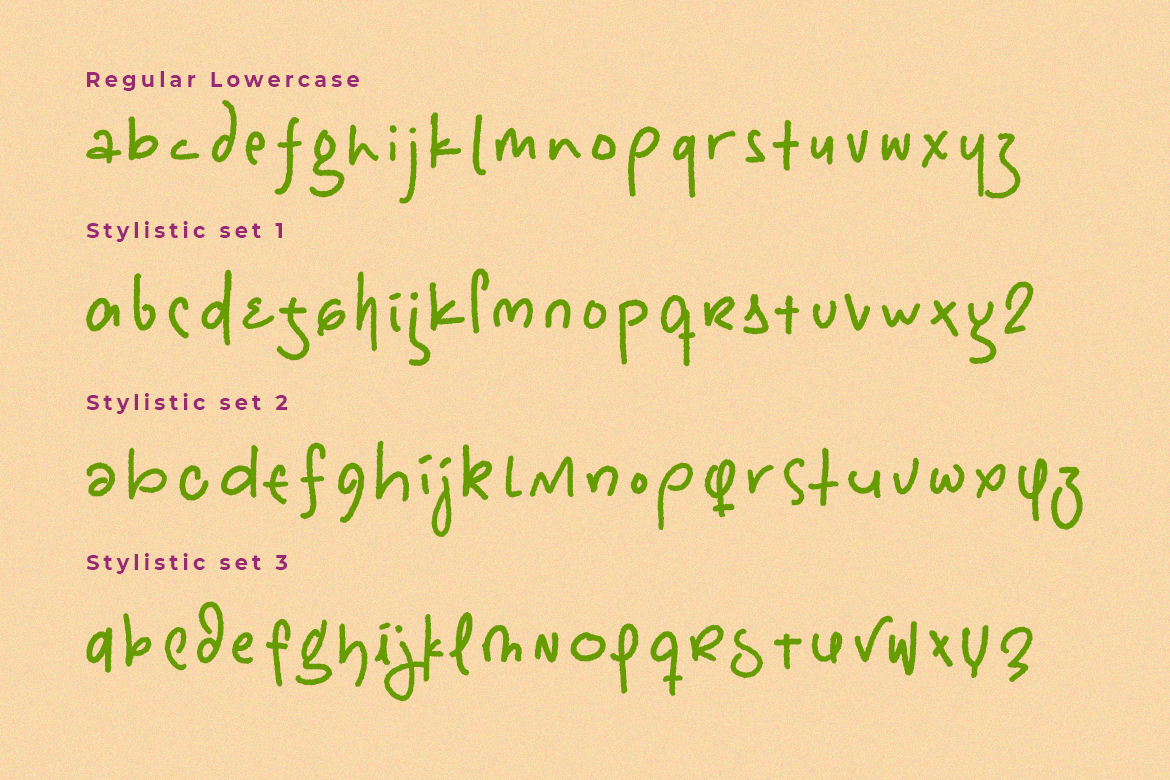 Regular Lowercase
abcdefghijklmnopqrstuvwxyz
Stylistic set 1
abcdefghijklmnopqrstuvwxyz
Stylistic set 2
abcdefghijklmnopqrstuvwxyz
Stylistic set 3
abcdefghijklmnopqrstuvwxyz